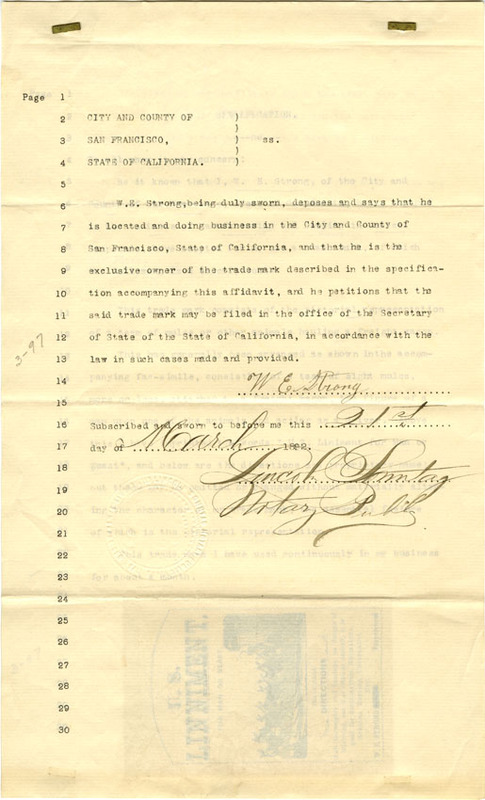 Page 1
2 CITY AND COUNTY OF )
)
3 SAN FRANCISCO, ) ss.
)
4 STATE OF CALIFORNIA. )
5
6 W.E. Strong, being duly sworn, deposes and says that he
7 is located and doing business in the City and County of
8 San Francisco, State of California, and that he is the
9 exclusive owner of the trade mark described in the specifica-
10 tion accompanying this affidavit, and he petitions that the
11 said trade mark may be filed in the office of the Secretary
12 of State of the State of California, in accordance with the
13 law in such cases made and provided.
3-97
14 W E Strong
15
16 Subscribed and sworn to before me this 21st
17 day of March 1892.
18 Lincoln Sonntag
19 Notary Public
20
21
22
23
24
25
26
27
28
29
30
U.S.
LINNIMENT.
DIRECTIONS